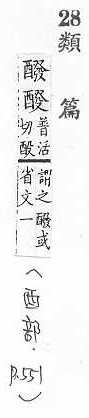 28 類篇
醱醗普活切酘
謂之醱或省文一
(酉部. p.551)